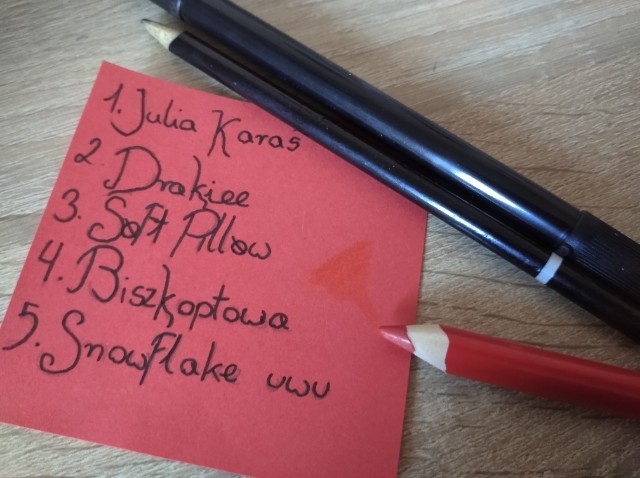 1. Julia Karaś
2. Drakiee
3. Soft Pillow
4. Biszkoptowa
5. Snowflake uwu